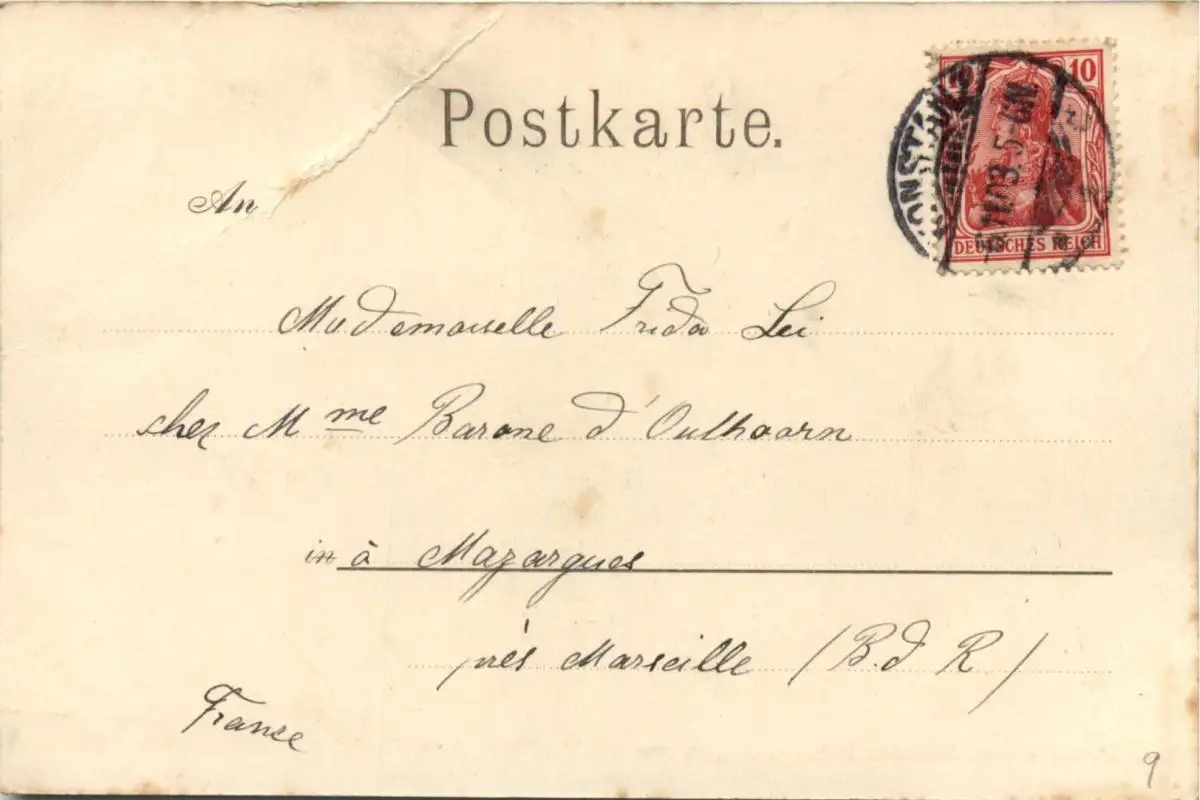 Postkarte.
10 10
KONSTANZ
11 03. 5-6 N.
DEUTSCHES REICH
An
Mademoiselle Frida Lei
chez Mme Barone d'Oulhoorn
in à Mazargues
près Marseille (B. d R)
France
9